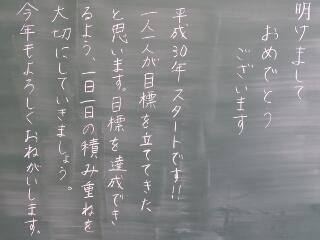 明けまして
おめでとう
ございます
平成30年スタートです!!
一人一人が目標を立ててきた
と思います。目標を達成でき
るよう、一日一日の積み重ねを
大切にしていきましょう。
今年もよろしくおねがいします。